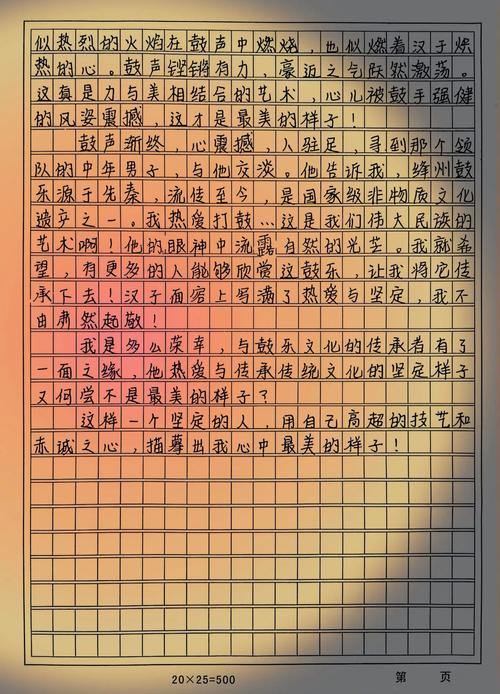 似热烈的火焰在鼓声中燃烧，也似燃着汉子炽
热的心。鼓声铿锵有力，豪迈之气跃然激荡。
这真是力与美相结合的艺术，心儿被鼓手强健
的风姿震撼，这才是最美的样子！
鼓声渐终，心震撼，人驻足，寻到那个领
队的中年男子，与他交谈。他告诉我，绛州鼓
乐源于先秦，流传至今，是国家级非物质文化
遗产之一。我热爱打鼓…这是我们伟大民族的
艺术啊！他的眼神中流露自然的光芒。我就希
望，有更多的人能够欣赏这鼓乐，让我将它传
承下去！汉子面容上写满了热爱与坚定，我不
由肃然起敬！
我是多么荣幸，与鼓乐文化的传承者有了
一面之缘，他热爱与传承传统文化的坚定样子
又何尝不是最美的样子？
这样一个坚定的人，用自己高超的技艺和
赤诚之心，描摹出我心中最美的样子！
20×25=500
第 页